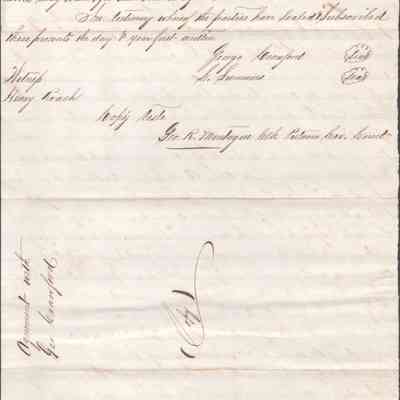 In testimony whereof the parties have sealed & subscribed
these presents the day & year first written
George Crawford Seal
S. Simmons Seal
Witness
Henry Roach
Copy Teste
Geo. R. Montague Clk
Agreement with
Geo Crawford